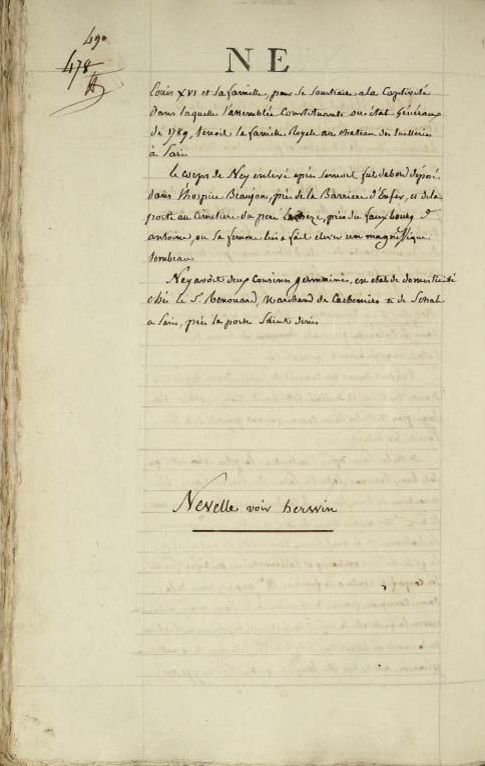 490
478
NE
Louis XVI et sa famille, pour se soustraire a la Captivité
dans laquelle l'assemblée Constituante ou état Généraux
de 1789, tenoit la famille Royale au chateau des tuilleries
à Paris
le corps de Ney enlevé après sa mort fut dabord déposé
dans l'hospice Beaujon, près de la Barriere d'Enfer, et de la
porté au Cimetiere du pere Lacheze, près du fauxbourg St
antoine, ou sa femme lui a fait elever un magniffique
tombeau
Ney avoit deux Cousines germaines, en etat de domesticité
chéz le S. Renouard, Marchand de Cachemires & de Schals
a Paris, près la porte Saint denis
Nevelle voir herwin